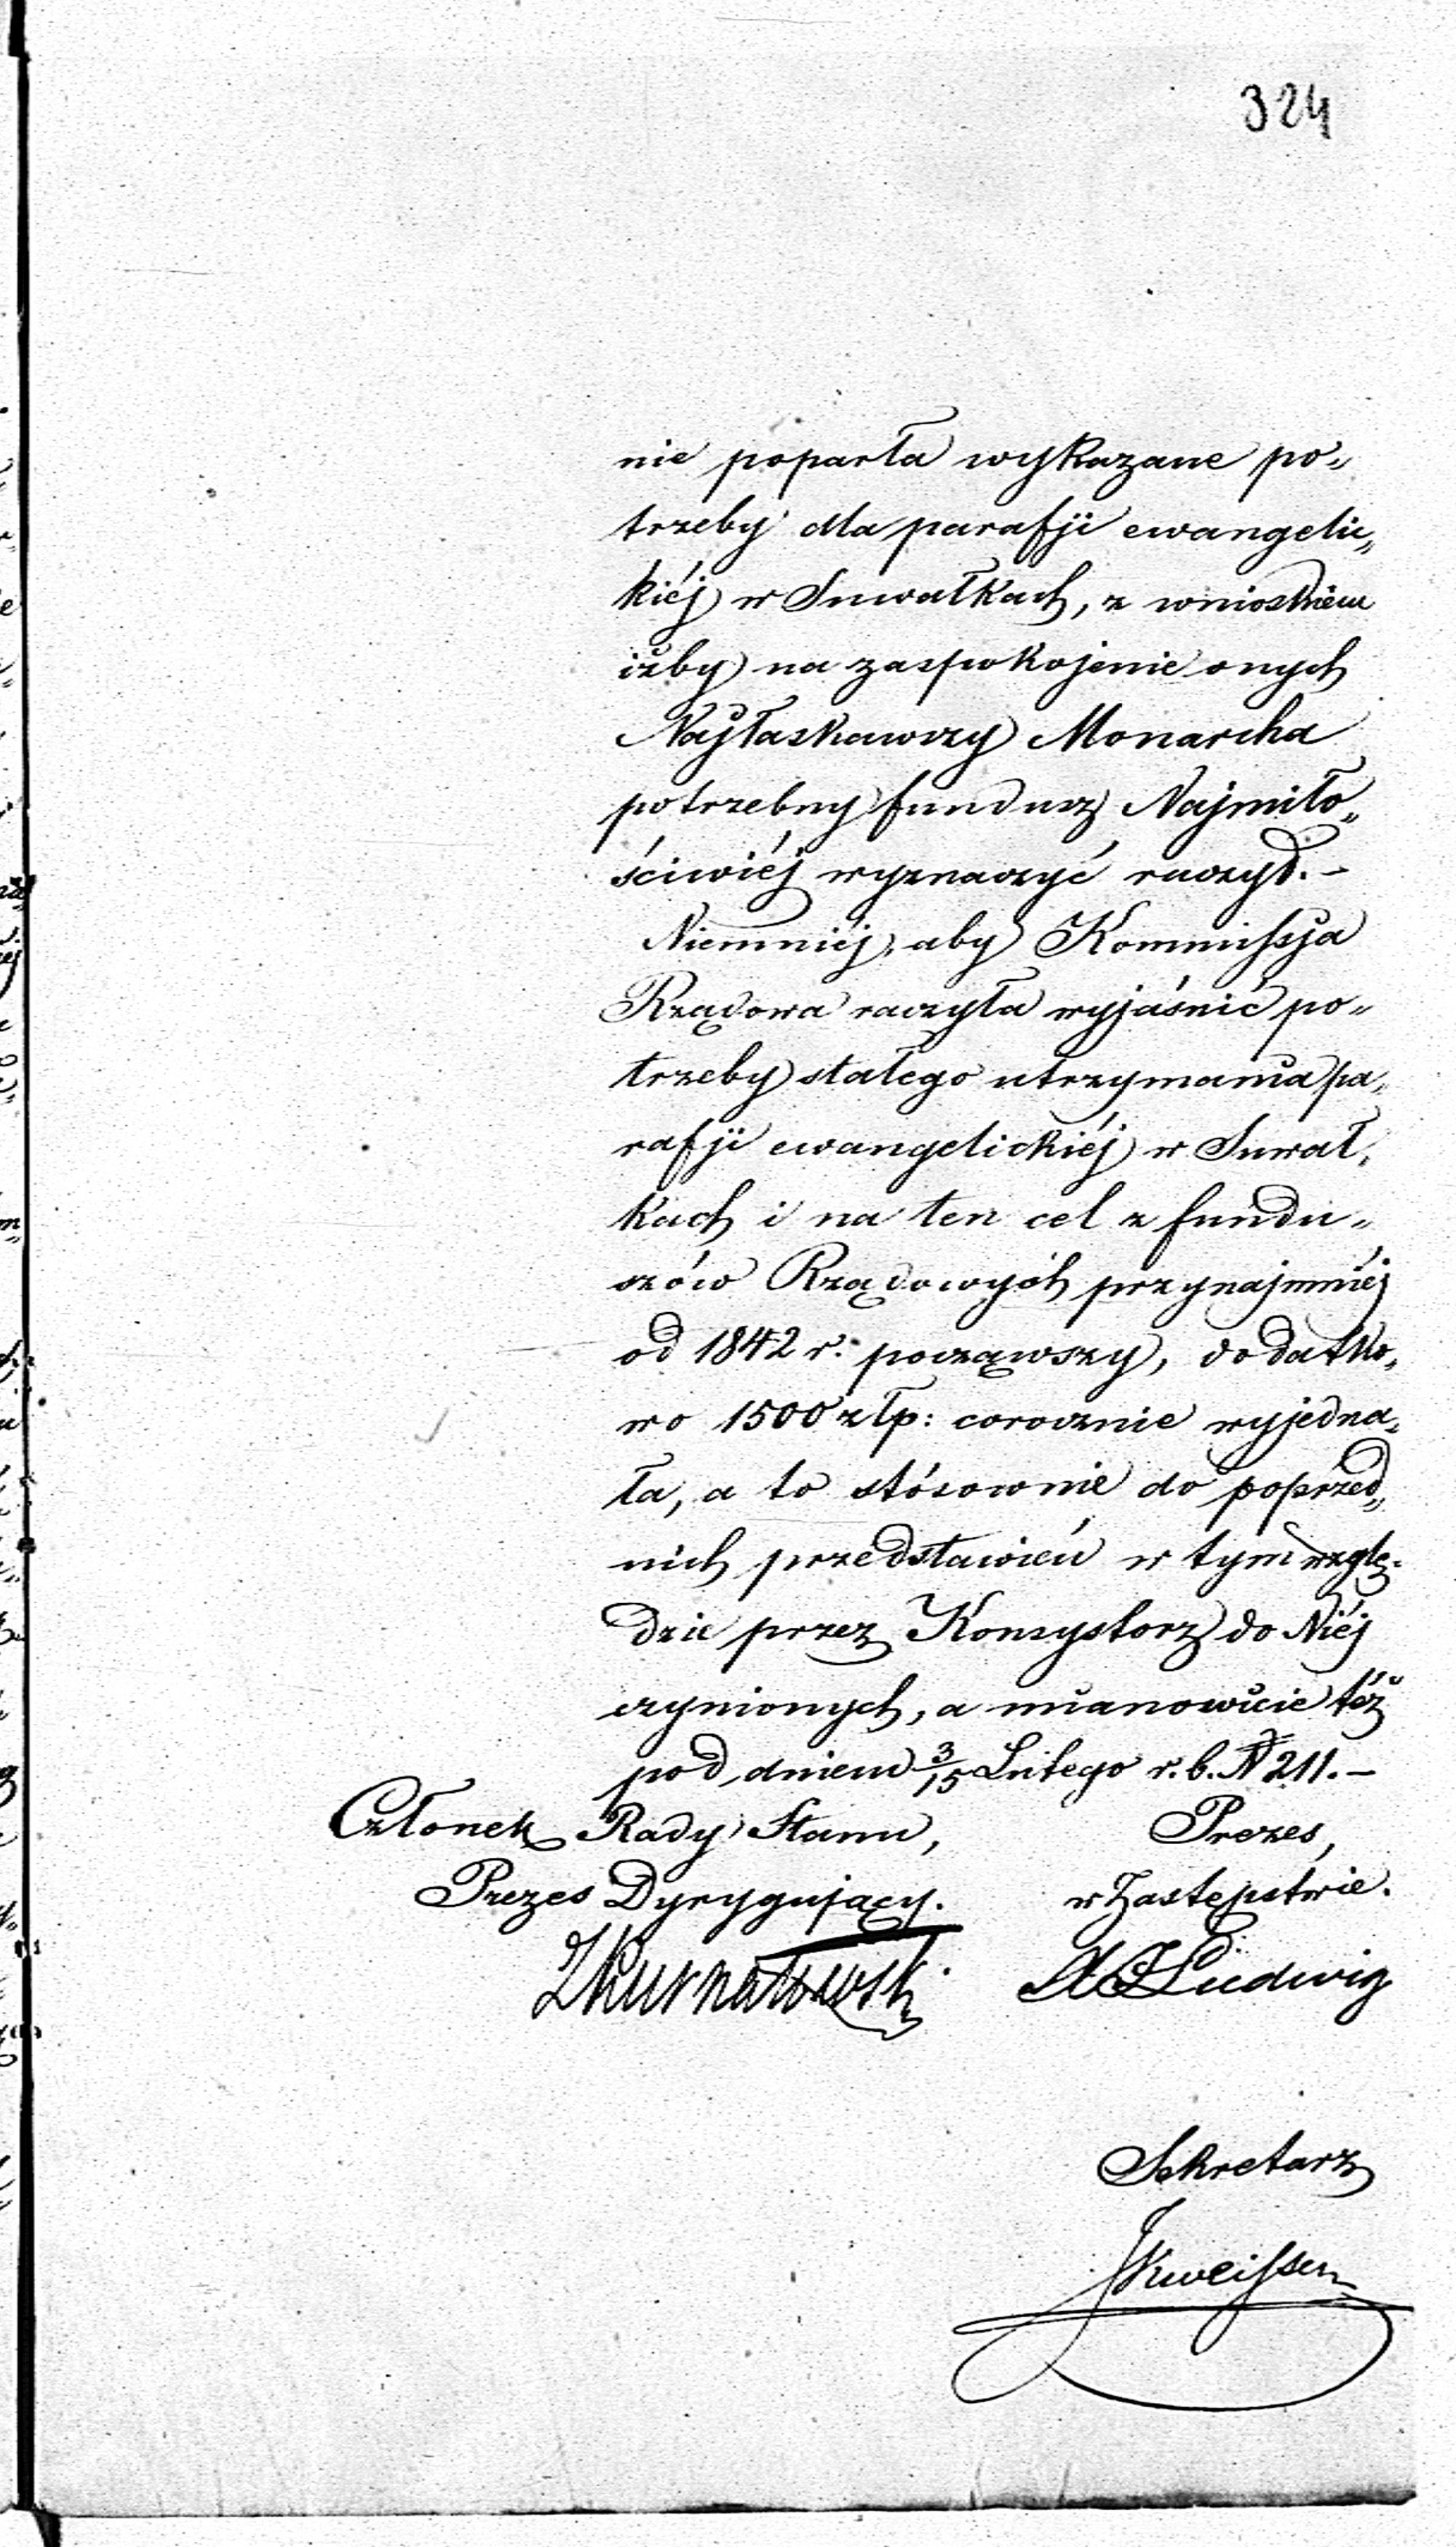 324
nie poparła wykazane po„
trzeby dla parafji ewangelic„
kiéj w Suwałkach, z wnioskiem
iżby na zaspokojenie onych
Najłaskawszy Monarcha
potrzebny fundusz Najmiło„
ściwiéj wyznaczyć raczył. –
Niemniéj, aby Kommissja
Rządowa raczyła wyjaśnić po„
trzeby stałego utrzymania pa„
rafji ewangelickiéj w Suwał„
kach i na ten cel z fundu„
szów Rządowych przynajmniéj
od 1842 r. począwszy, dodatko„
wo 1500 złp: corocznie wyjedna„
ła, a to stósownie do poprzed„
nich przedstawień w tym wzglę„
dzie przez Konsystorz do Niéj
czynionych, a mianowicie téż
pod dniem 3/15 Lutego r. b. N 211. –
Członek Rady Stanu, Prezes,
Prezes Dyrygujący. w Zastępstwie.
Kurnatowski Ludwig
Sekretarz